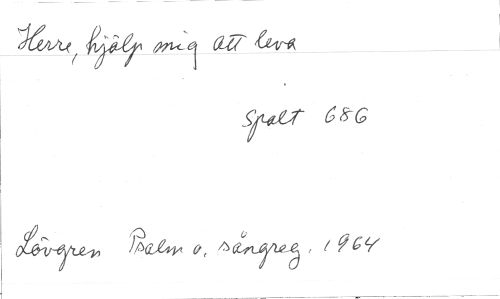 Herre, hjälp mig att leva
Spalt 686
Lövgren Psalm o. sångreg. 1964